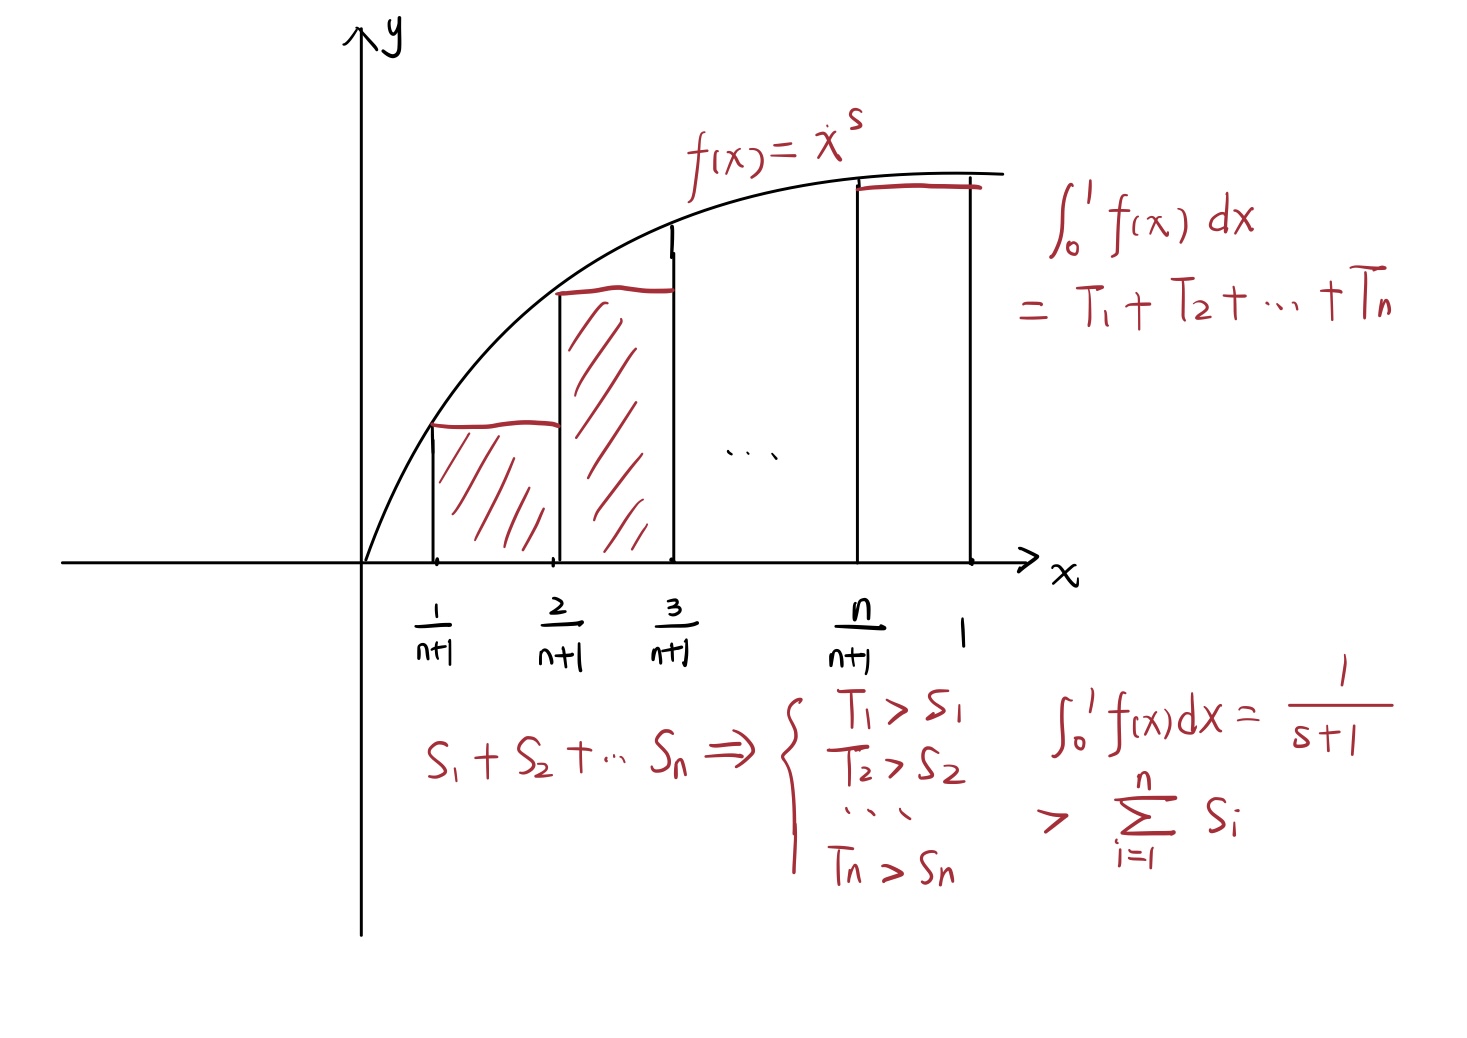 y
f(x) = x^s
∫_0^1 f(x) dx
= T_1 + T_2 + ... + T_n
...
x
1/(n+1) 2/(n+1) 3/(n+1) n/(n+1) 1
S_1 + S_2 + ... S_n ⇒ { T_1 > S_1
T_2 > S_2
...
T_n > S_n
∫_0^1 f(x)dx = 1/(s+1)
> ∑_{i=1}^n S_i